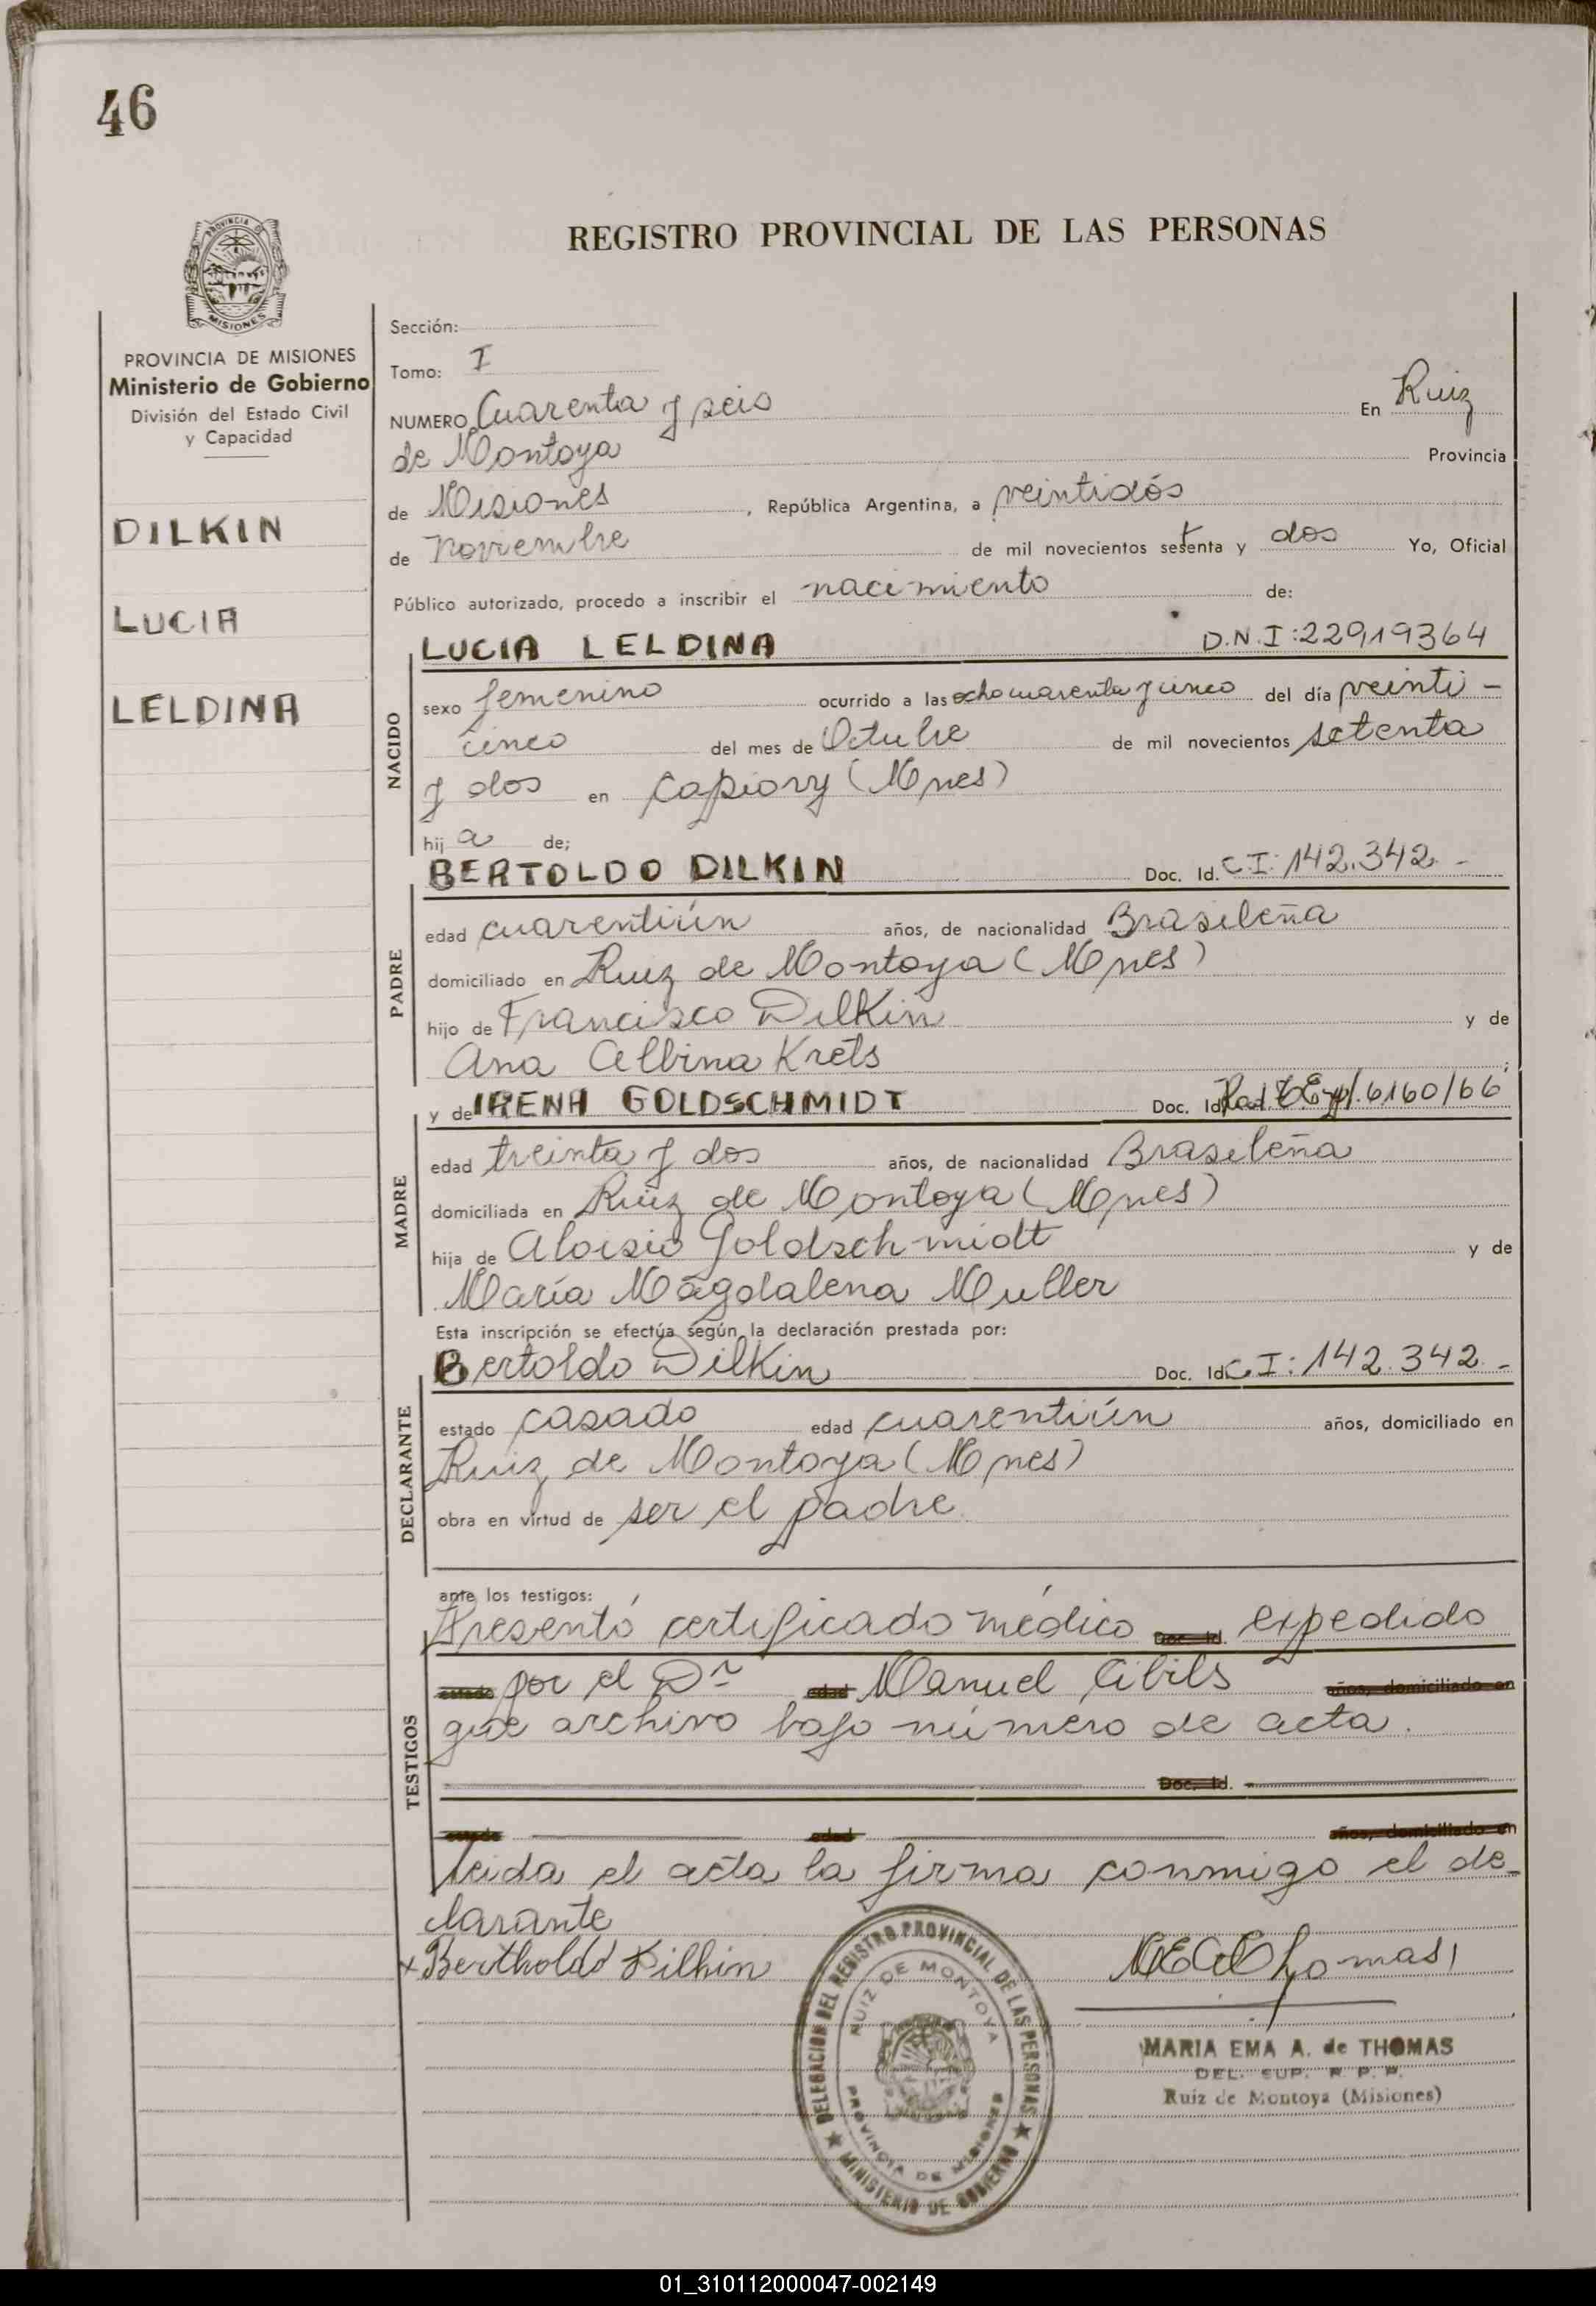 46
PROVINCIA DE
MISIONES
REGISTRO PROVINCIAL DE LAS PERSONAS
PROVINCIA DE MISIONES
Ministerio de Gobierno
División del Estado Civil
y Capacidad
DILKIN
LUCIA
LELDINA
Sección:
Tomo: I
NUMERO Cuarenta y seis En Ruiz
de Montoya Provincia
de Misiones, República Argentina, a veintidós
de noviembre de mil novecientos setenta y dos Yo, Oficial
Público autorizado, procedo a inscribir el nacimiento de:
LUCIA LELDINA D.N.I:22919364
NACIDO
sexo femenino ocurrido a las ocho cuarenta y cinco del día veinti-
cinco del mes de Octubre de mil novecientos setenta
y dos en Capiovy (Mnes)
hija de;
BERTOLDO DILKIN Doc. Id. C.I: 142.342.-
PADRE
edad cuarentiún años, de nacionalidad Brasileña
domiciliado en Ruiz de Montoya (Mnes)
hijo de Francisco Dilkin y de
Ana Albina Krets
y de IRENA GOLDSCHMIDT Doc. Id. Rad. Exp. 6160/66
MADRE
edad treinta y dos años, de nacionalidad Brasileña
domiciliada en Ruiz de Montoya (Mnes)
hija de Aloisio Goldschmidt y de
María Magdalena Muller
Esta inscripción se efectúa según la declaración prestada por:
Bertoldo Dilkin Doc. Id. C.I: 142.342.-
DECLARANTE
estado casado edad cuarentiún años, domiciliado en
Ruiz de Montoya (Mnes)
obra en virtud de ser el padre
ante los testigos:
Presentó certificado médico Doc. Id. expedido
TESTIGOS
estado por el Dr edad Manuel Cibils años, domiciliado en
que archivo bajo número de acta.
Doc. Id.
estado edad años, domiciliado en
Leida el acta la firma conmigo el de-
clarante
x Berthold Dilkin Thomas
DELEGACION DEL REGISTRO PROVINCIAL DE LAS PERSONAS
RUIZ DE MONTOYA
PROVINCIA DE MISIONES
MINISTERIO DE GOBIERNO
MARIA EMA A. de THOMAS
DEL. SUP. R. P. P.
Ruiz de Montoya (Misiones)
01_310112000047-002149